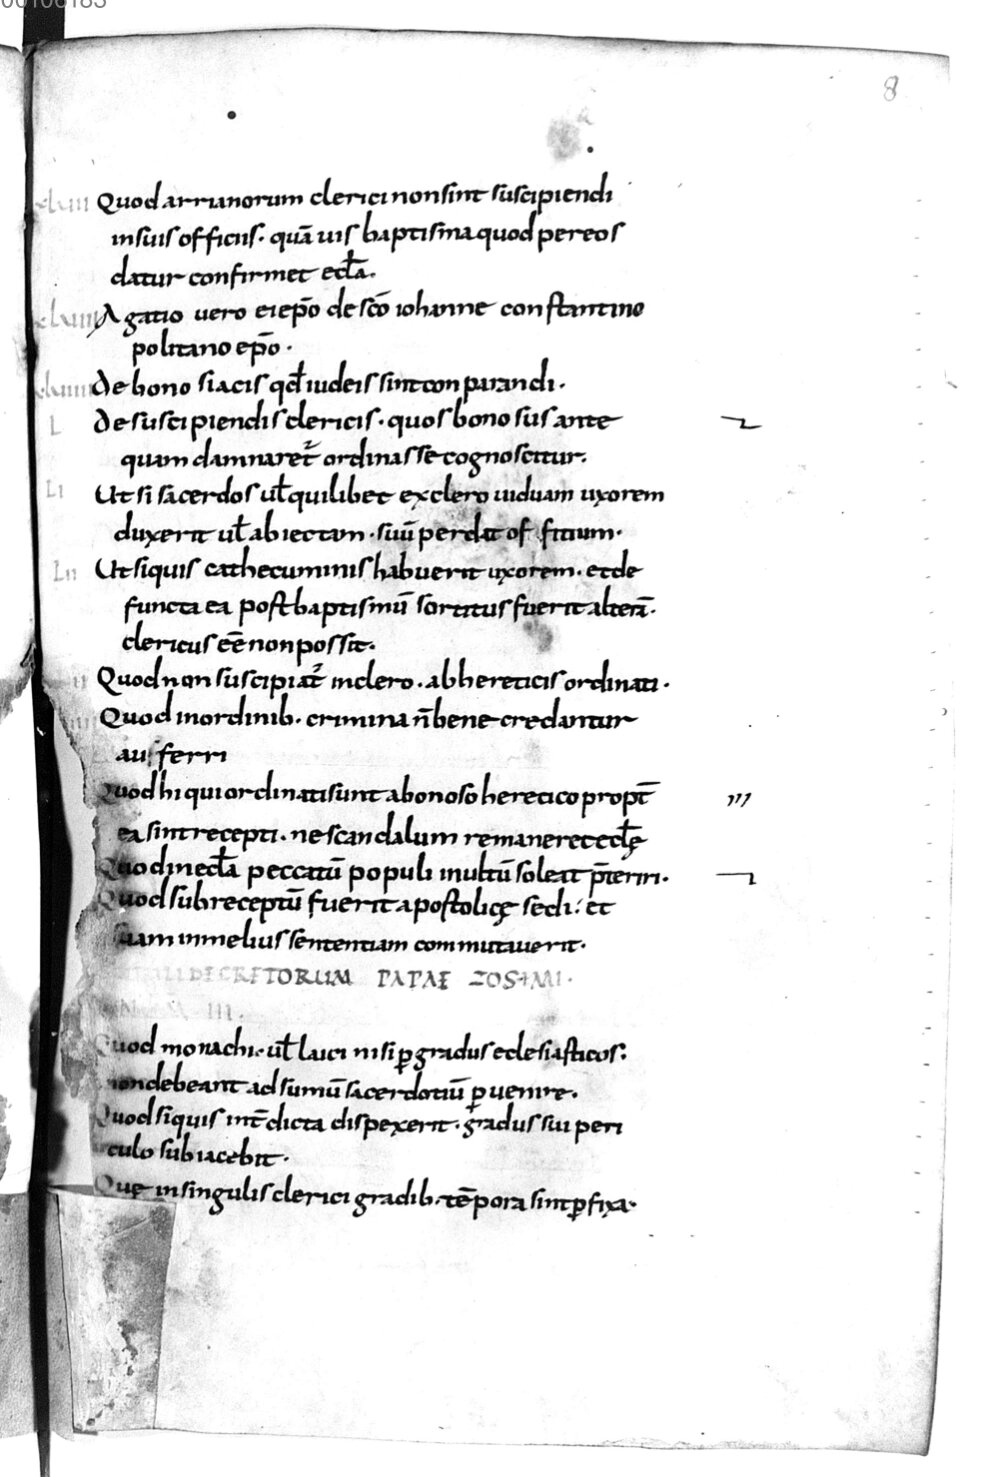 8
xlvii Quod arrianorum clerici non sint suscipiendi
in suis officiis · quāuis baptisma quod per eos
datur confirmet eccła.
xlviii Agatio uero et epō de scō iohanne constantino
politano epō ·
xlviiii de bono siacis qđ iudeis sint conparandi.
L de suscipiendis clericis · quos bonosus ante
quam damnaret̃ ordinasse cognoscitur.
Li Ut si sacerdos uł quilibet ex clero uiduam uxorem
duxerit uł abiectam · suū perdat officium.
Lii Ut si quis cathecuminis habuerit uxorem. et de
functa ea post baptismū sortitus fuerit alterā.
clericus eē non possit.
Quod non suscipiat̃ in clero. ab hereticis ordinati.
Quod in ordinib. crimina ñ bene credantur
auferri
Quod hi qui ordinati sunt a bonoso heretico propt̄
ea sint recepti. ne scandalum remaneret eccłę
Quod in eccła peccatū populi inultū soleat p̄teriri.
Quod subreceptū fuerit apostolicę sedi. et
suam in melius sententiam commutauerit.
DECRETORUM PAPAE ZOSIMI.
III.
Quod monachi. uł laici nisi ꝑ gradus eclesiasticos.
non debeant ad sumū sacerdotiū ꝑuenire.
Quod si quis int̄dicta dispexerit. gradus sui peri
culo subiacebit.
Quę in singulis clerici gradib. tēpora sint p̄fixa.